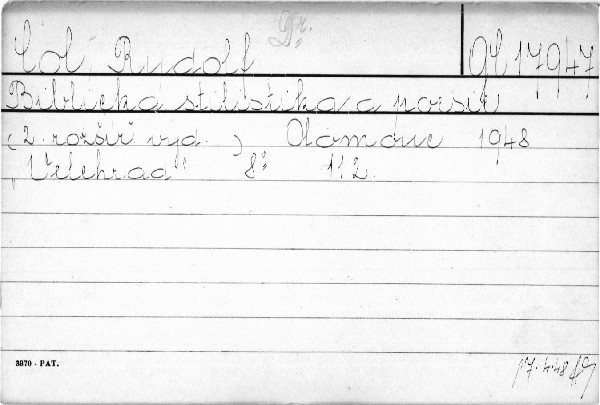 Dr.
Col Rudolf
Biblická stilistika a poesie
(2. rozšíř. vyd.) Olomouc 1948
"Velehrad" 8° 112.
3870 - PAT.
17.4.48